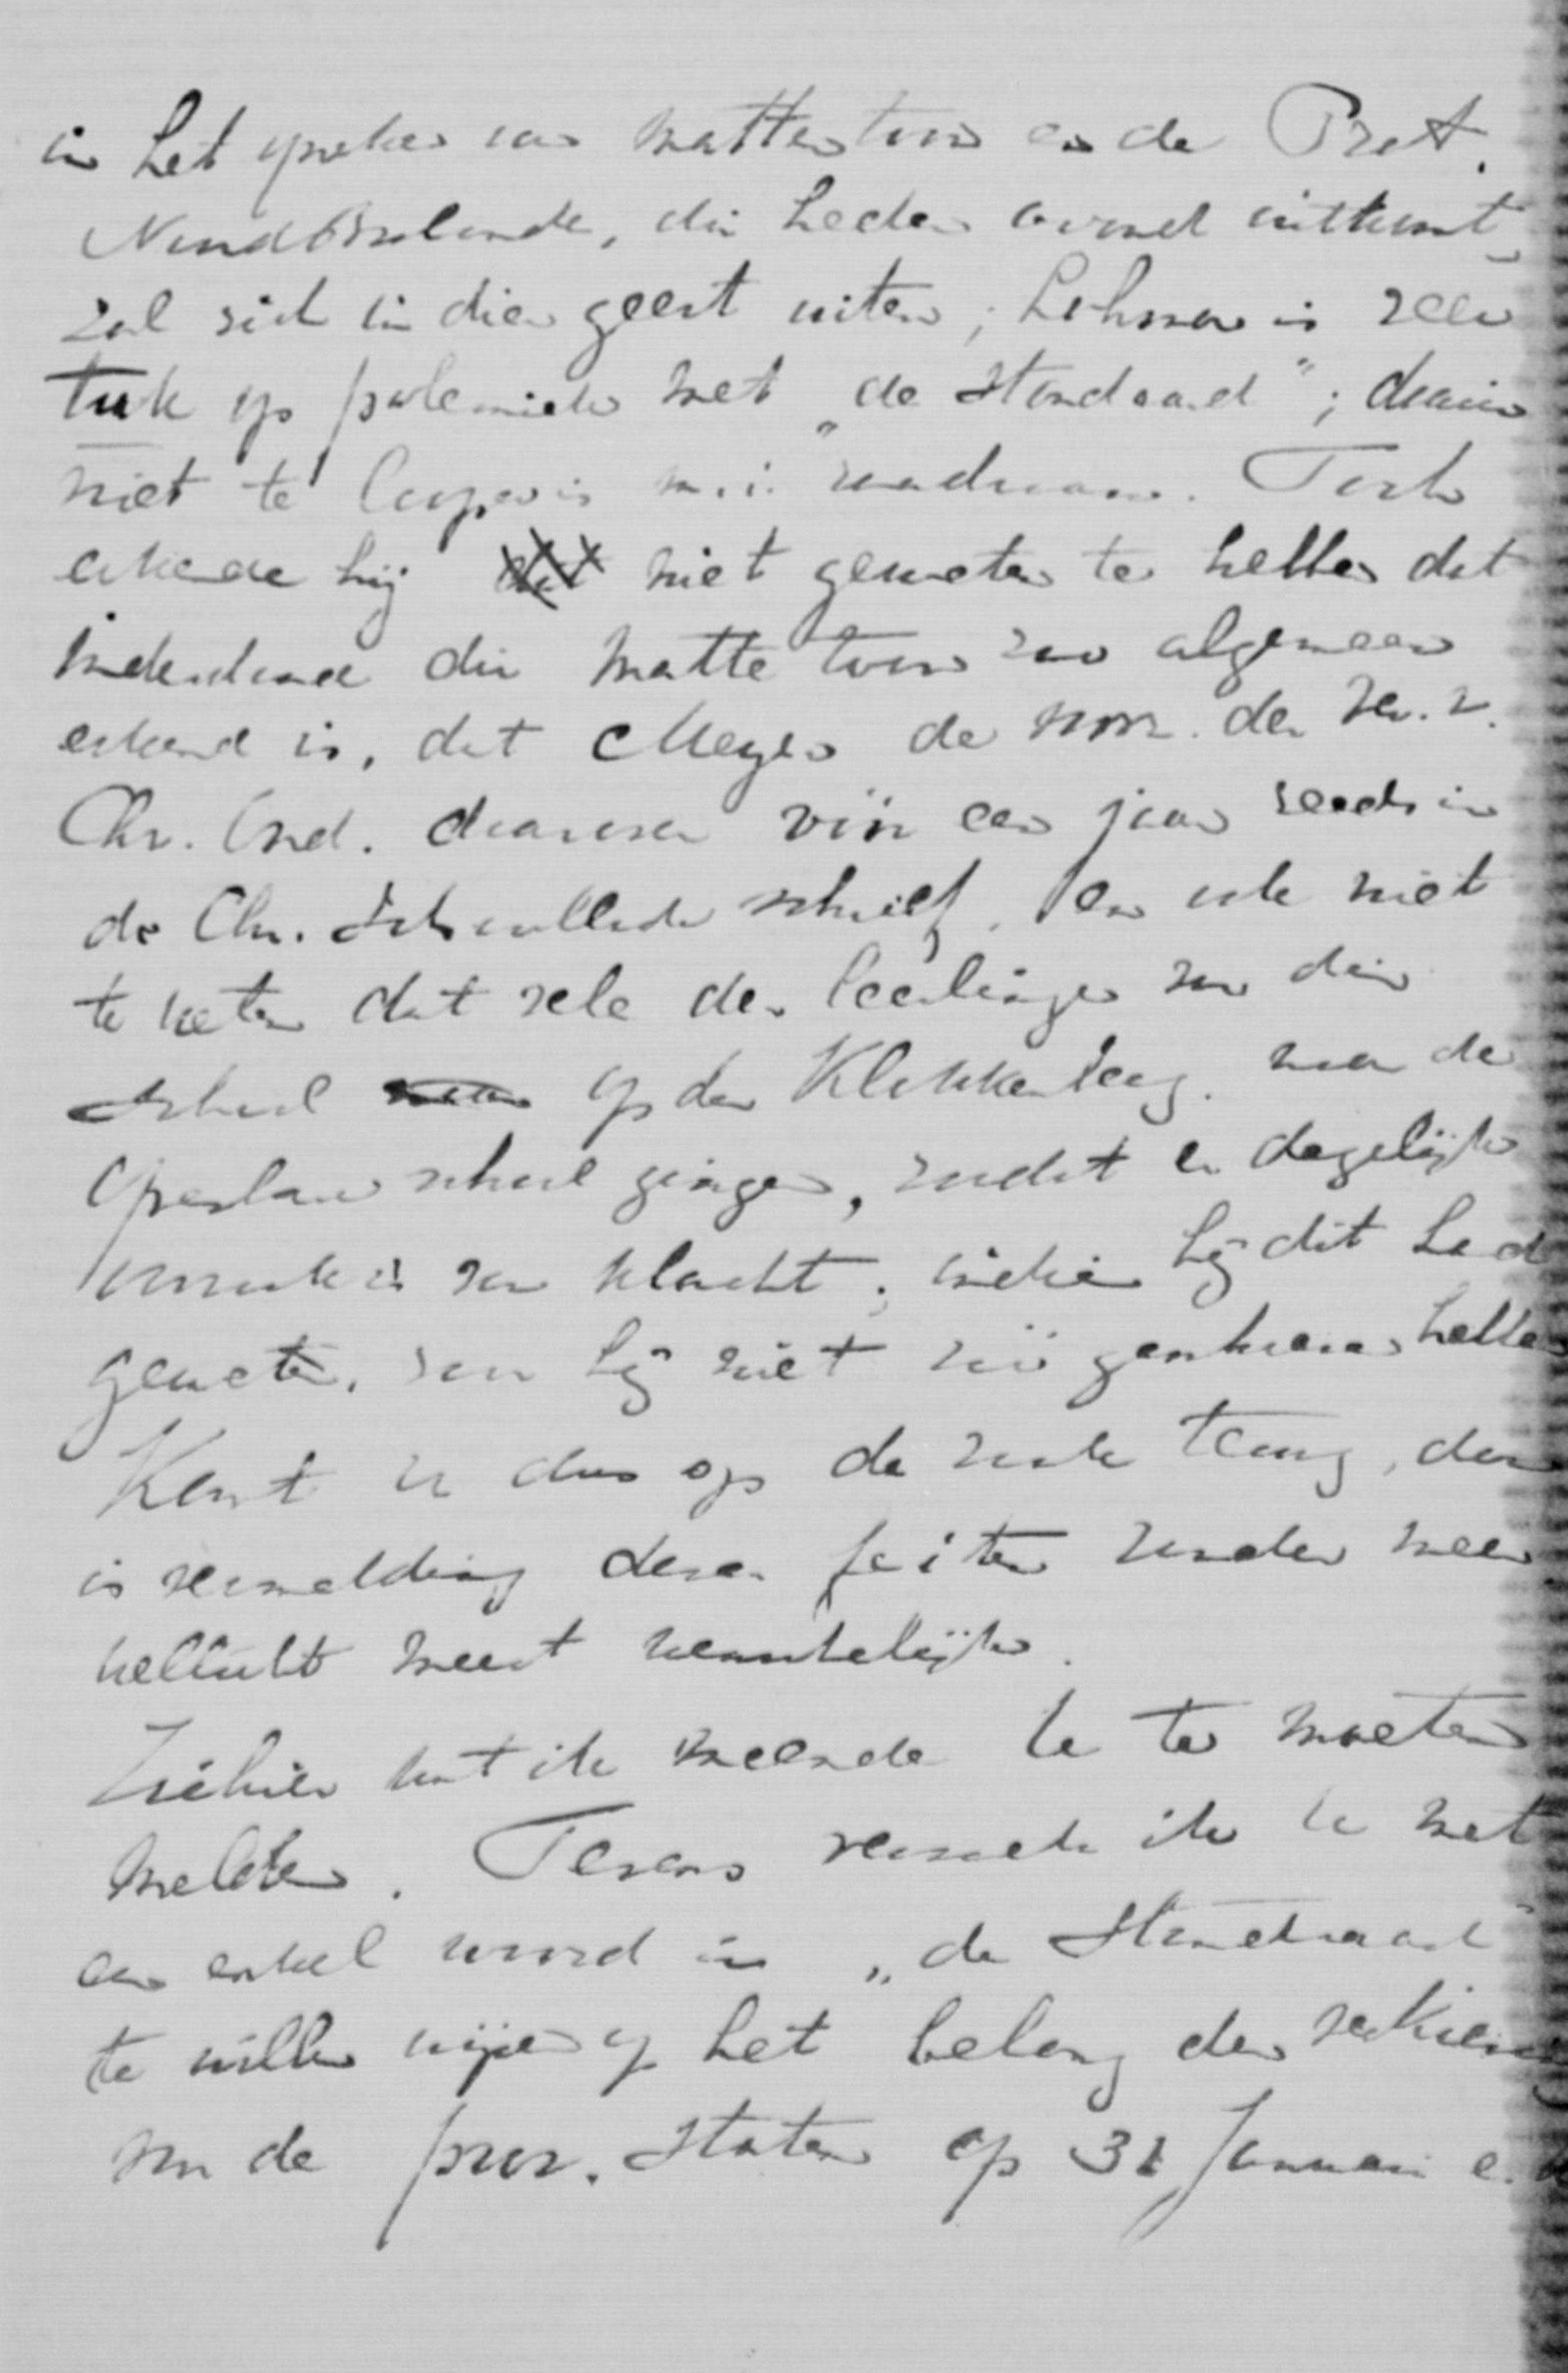 in het spreken van wattentoon en de Prot.
Noordbrabander, die heden avond uitkomt,
zal zich in dien geest uiten; Lohman is zeer
tuk op polemiek met „de Standaard"; daarin
niet te loopen is m.i. raadzaam. Toch
erkende hij niet geweten te hebben dat
inderdaad die toon zoo algemeen
erkend is, dat Meyer de voorz. der Ver. v.
Chr. Ond. daarover vóór een jaar reeds in
de Chr. Schoolbode schreef, en ook niet
te weten dat vele der leerlingen van die
school op den Klokkenberg naar de
openbare school gingen, zoodat er dagelijks
oorzaak is van klacht; indien hij dit had
geweten, zou hij niet zóó gesproken hebben
Komt U dus op de zaak terug, dan
is vermelding dezer feiten zonder meer
wellicht meest wenschelijk.
Ziehier wat ik meende U te moeten
melden. Tevens verzoek ik U met
een enkel woord in „de Standaard"
te willen wijzen op het belang der verkiezing
van de prov. Staten op 31 Januari e.